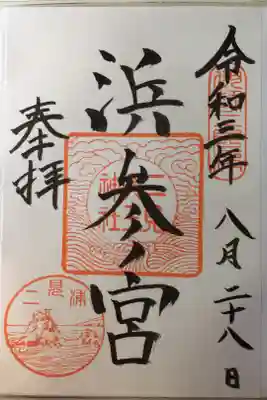 令和三年八月二十八日
浜参宮
奉拝
二見
神社
二見浦